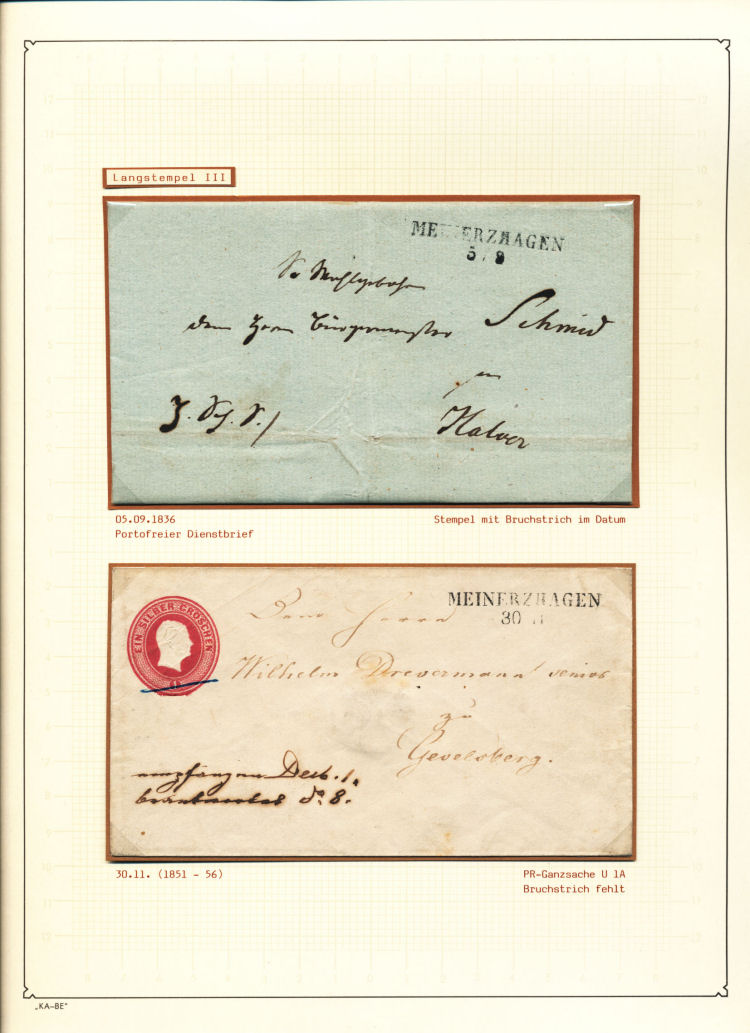 Langstempel III
MEINERZHAGEN
5 / 9
dem Herrn Bürgermeister Schmid
in
Halver
05.09.1836
Stempel mit Bruchstrich im Datum
Portofreier Dienstbrief
EIN SILBER GROSCHEN
MEINERZHAGEN
30 11
Dem Herrn
Wilhelm Drevermann senior
zu
Gevelsberg.
empfangen Decb. 1.
beantwortet do. 8.
30.11. (1851 - 56)
PR-Ganzsache U 1A
Bruchstrich fehlt
„KA-BE"